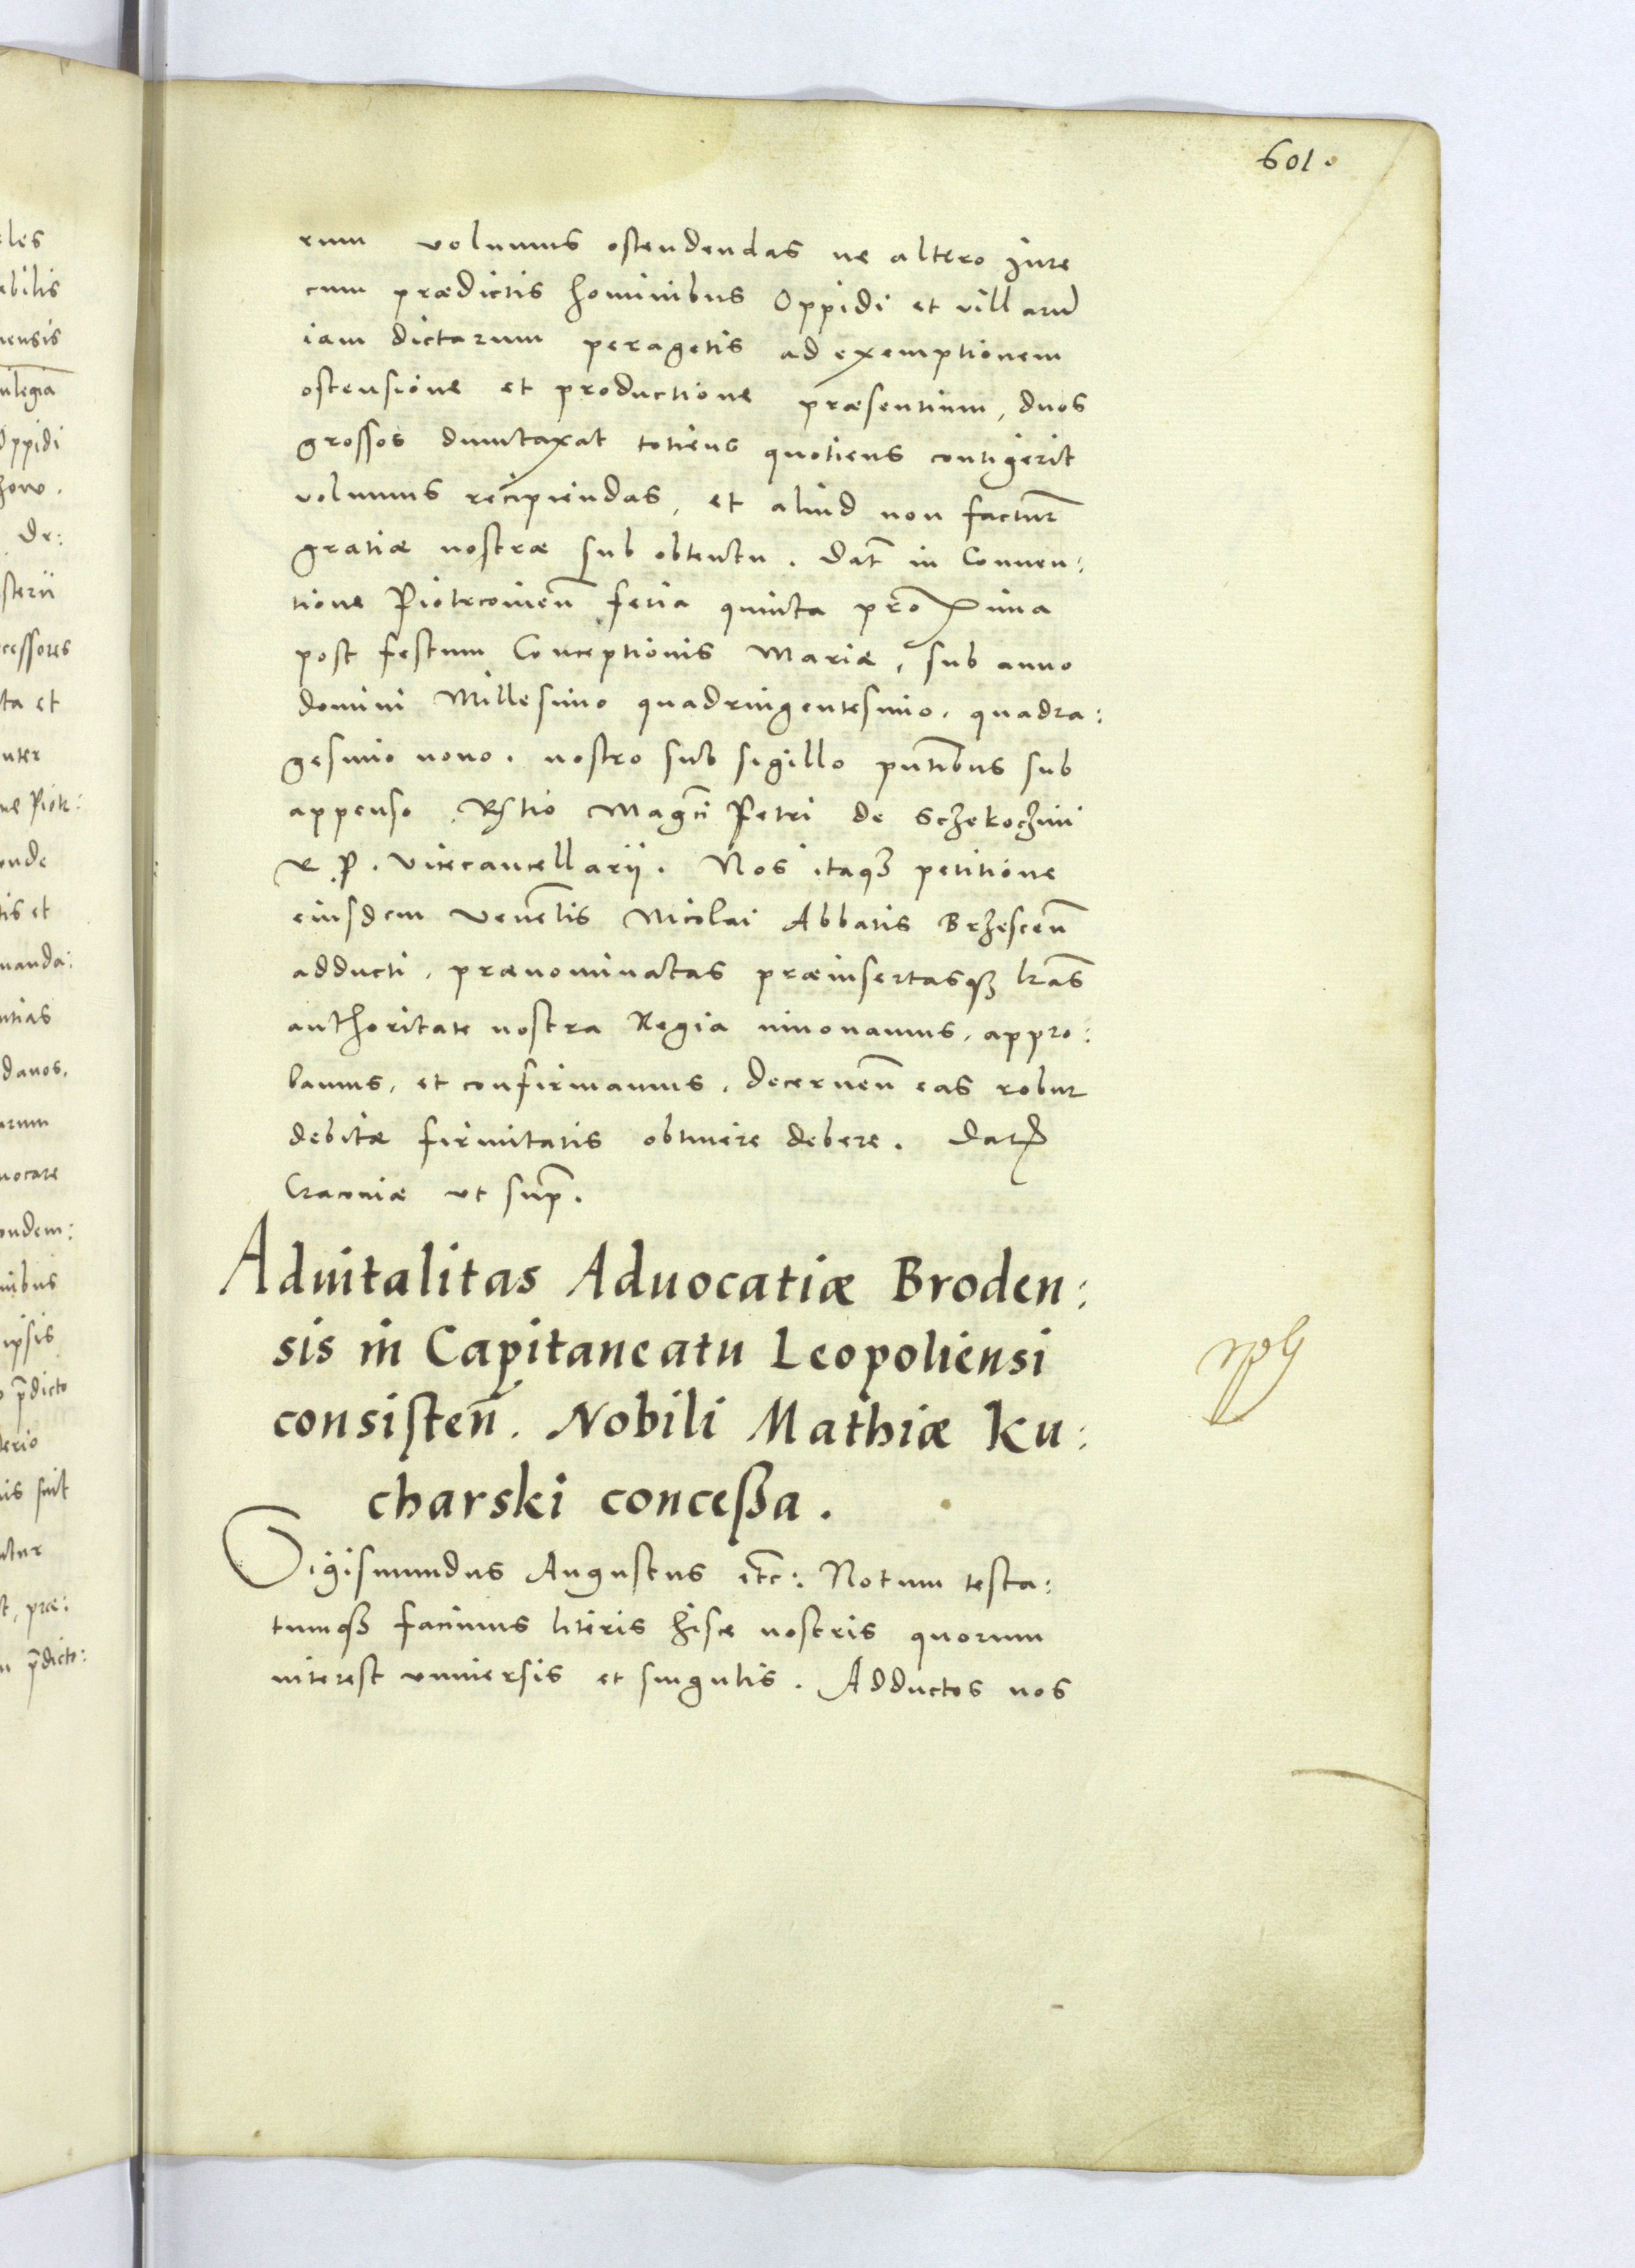 601.
rum volumus ostendendas ne altero iure
cum prædictis hominibus Oppidi et villarũ
iam dictarum peragetis ad exemptionem
ostensione et productione præsentium, duos
grossos duntaxat totiens quotiens contigerit
volumus recipiendas, et aliud non facturi
gratiæ nostræ sub obtentu. Dat̃ in Conuen:
tione Piotrcouien̄ feria quinta proxima
post festum Conceptionis Mariæ, sub anno
domini Millesimo quadringentesimo, quadra:
gesimo nono. nostro sub sigillo pñtibus sub
appenso. Rẽtio Magcī Petri de Sczekoczini
R. P. Vicecancellarij. Nos itaqꝫ petitione
eiusdem Venelis Nicolai Abbatis Brzescen̄
adducti, prænominatas præinsertasqꝫ lr̃as
authoritate nostra Regia innouamus, appro:
bamus, et confirmamus, decernen̄ eas robur
debitæ firmitatis obtinere debere. Dat̃
Cracouiæ ut sup̃.
Aduitalitas Aduocatiæ Broden:
sis in Capitaneatu Leopoliensi
consisten̄. Nobili Mathiæ Ku:
charski conceßa.
Sigismundus Augustus etc: Notum testa:
tumqꝫ facimus literis hisce nostris quorum
interest vniuersis et singulis. Adductos nos
les
abilis
nensis
uilegia
Oppidi
zow.
De:
sterii
cessores
ta et
nter
ne Piotr:
onde
tis et
manda:
ntias
danos,
arum
uocare
ondem:
nibus
ipsis
p̃dicto
terio
is sint
ctur
t, præ:
p̃dicto: